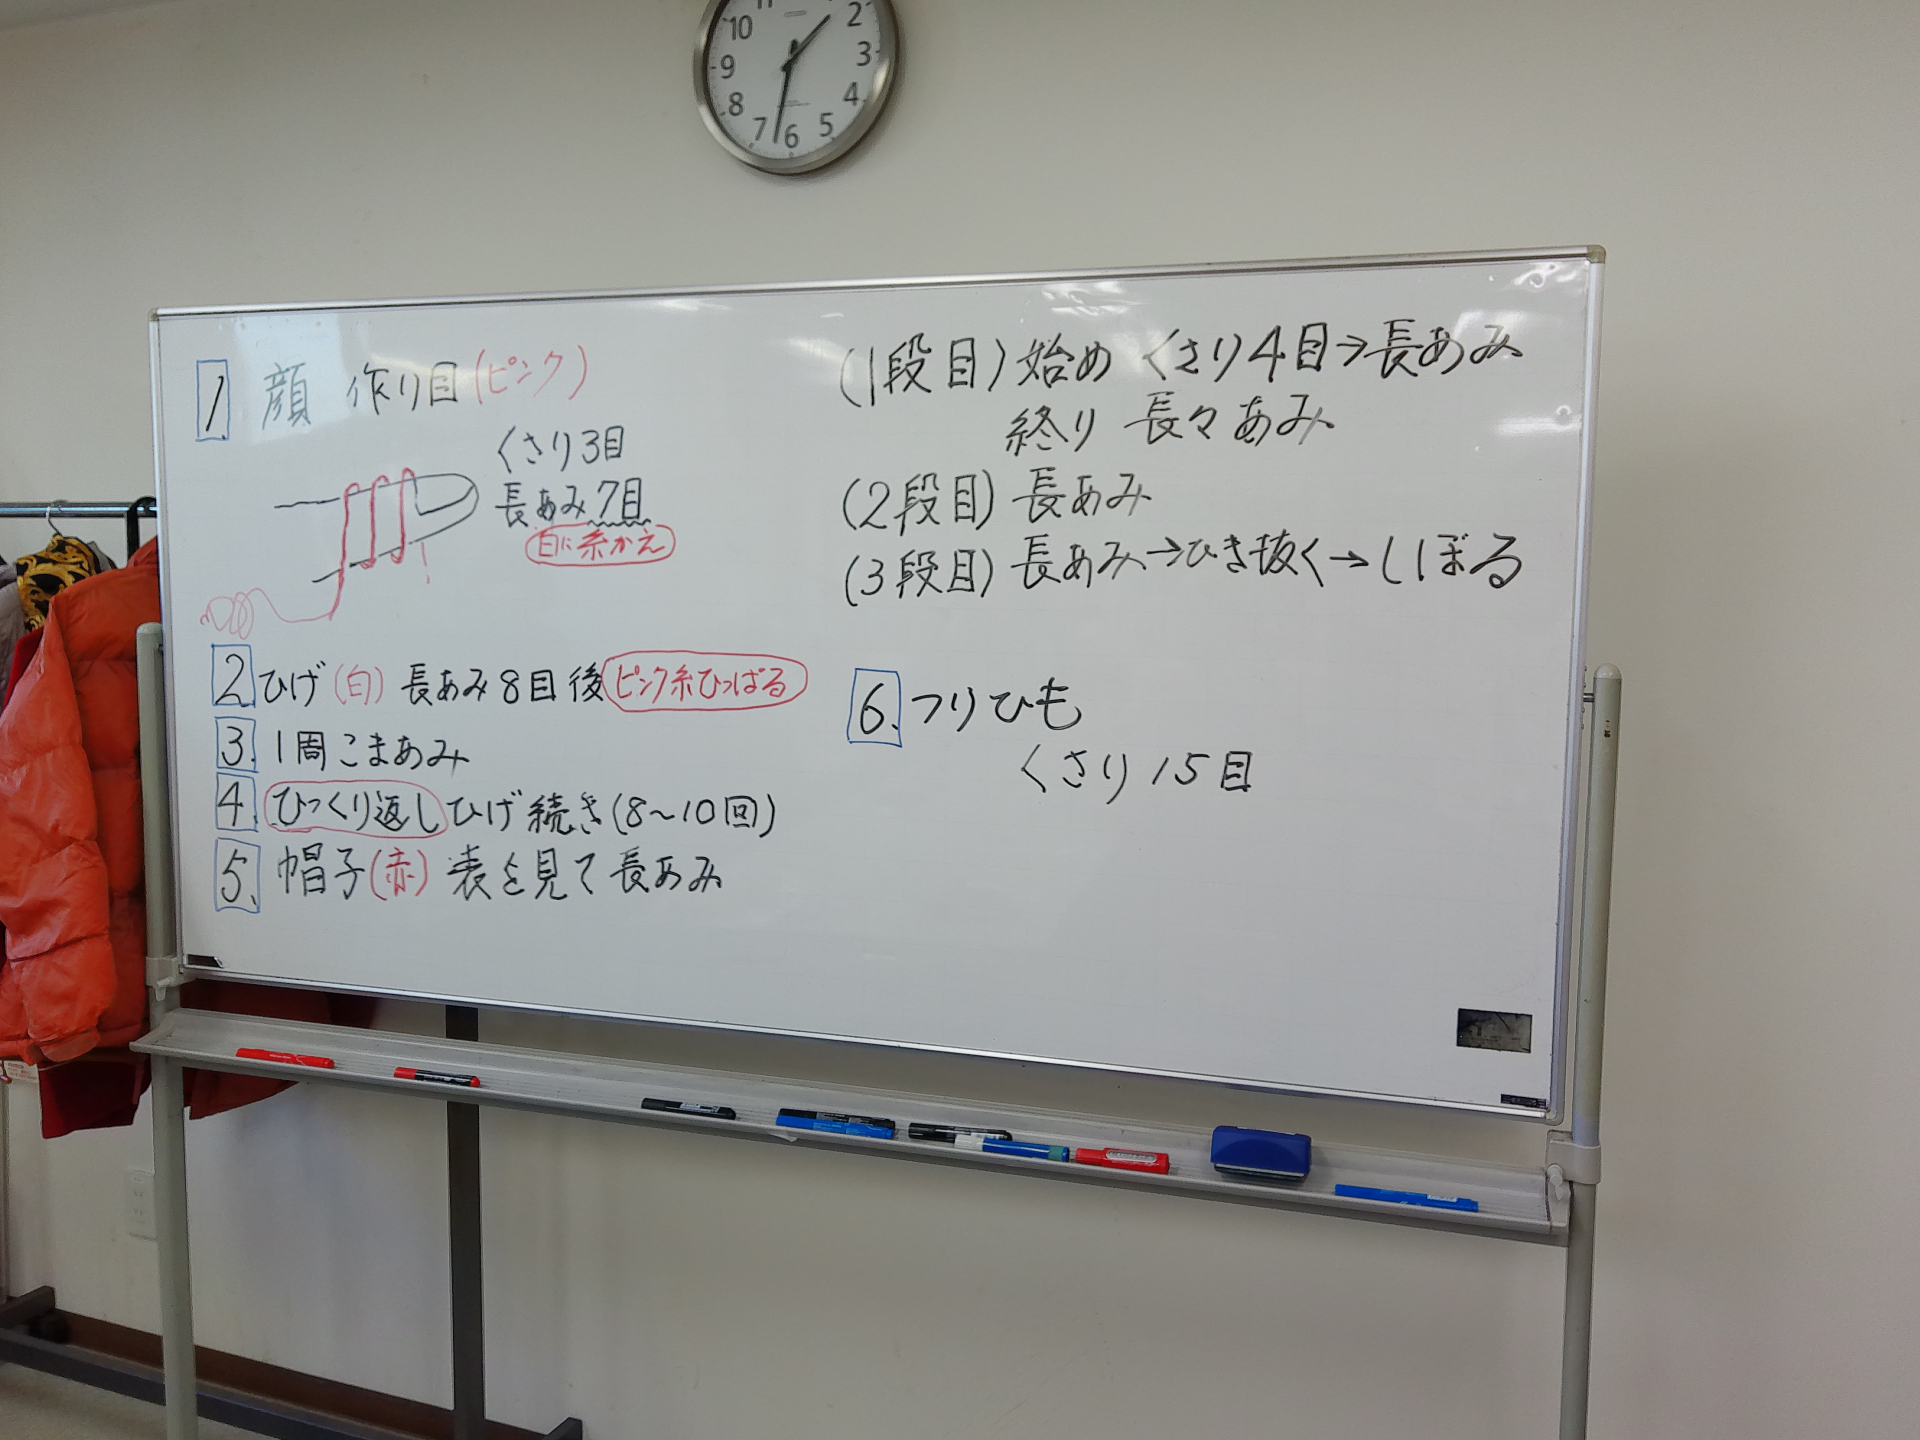 11
10
2
9
3
8
4
7
6
5
1. 顔 作り目(ピンク)
くさり3目
長あみ7目
白に糸かえ
2 ひげ(白) 長あみ8目後ピンク糸ひっぱる
3. 1周こまあみ
4. ひっくり返しひげ続き(8〜10回)
5. 帽子(赤) 表を見て長あみ
(1段目)始め くさり4目→長あみ
終り 長々あみ
(2段目)長あみ
(3段目)長あみ→ひき抜く→しぼる
6. つりひも
くさり15目